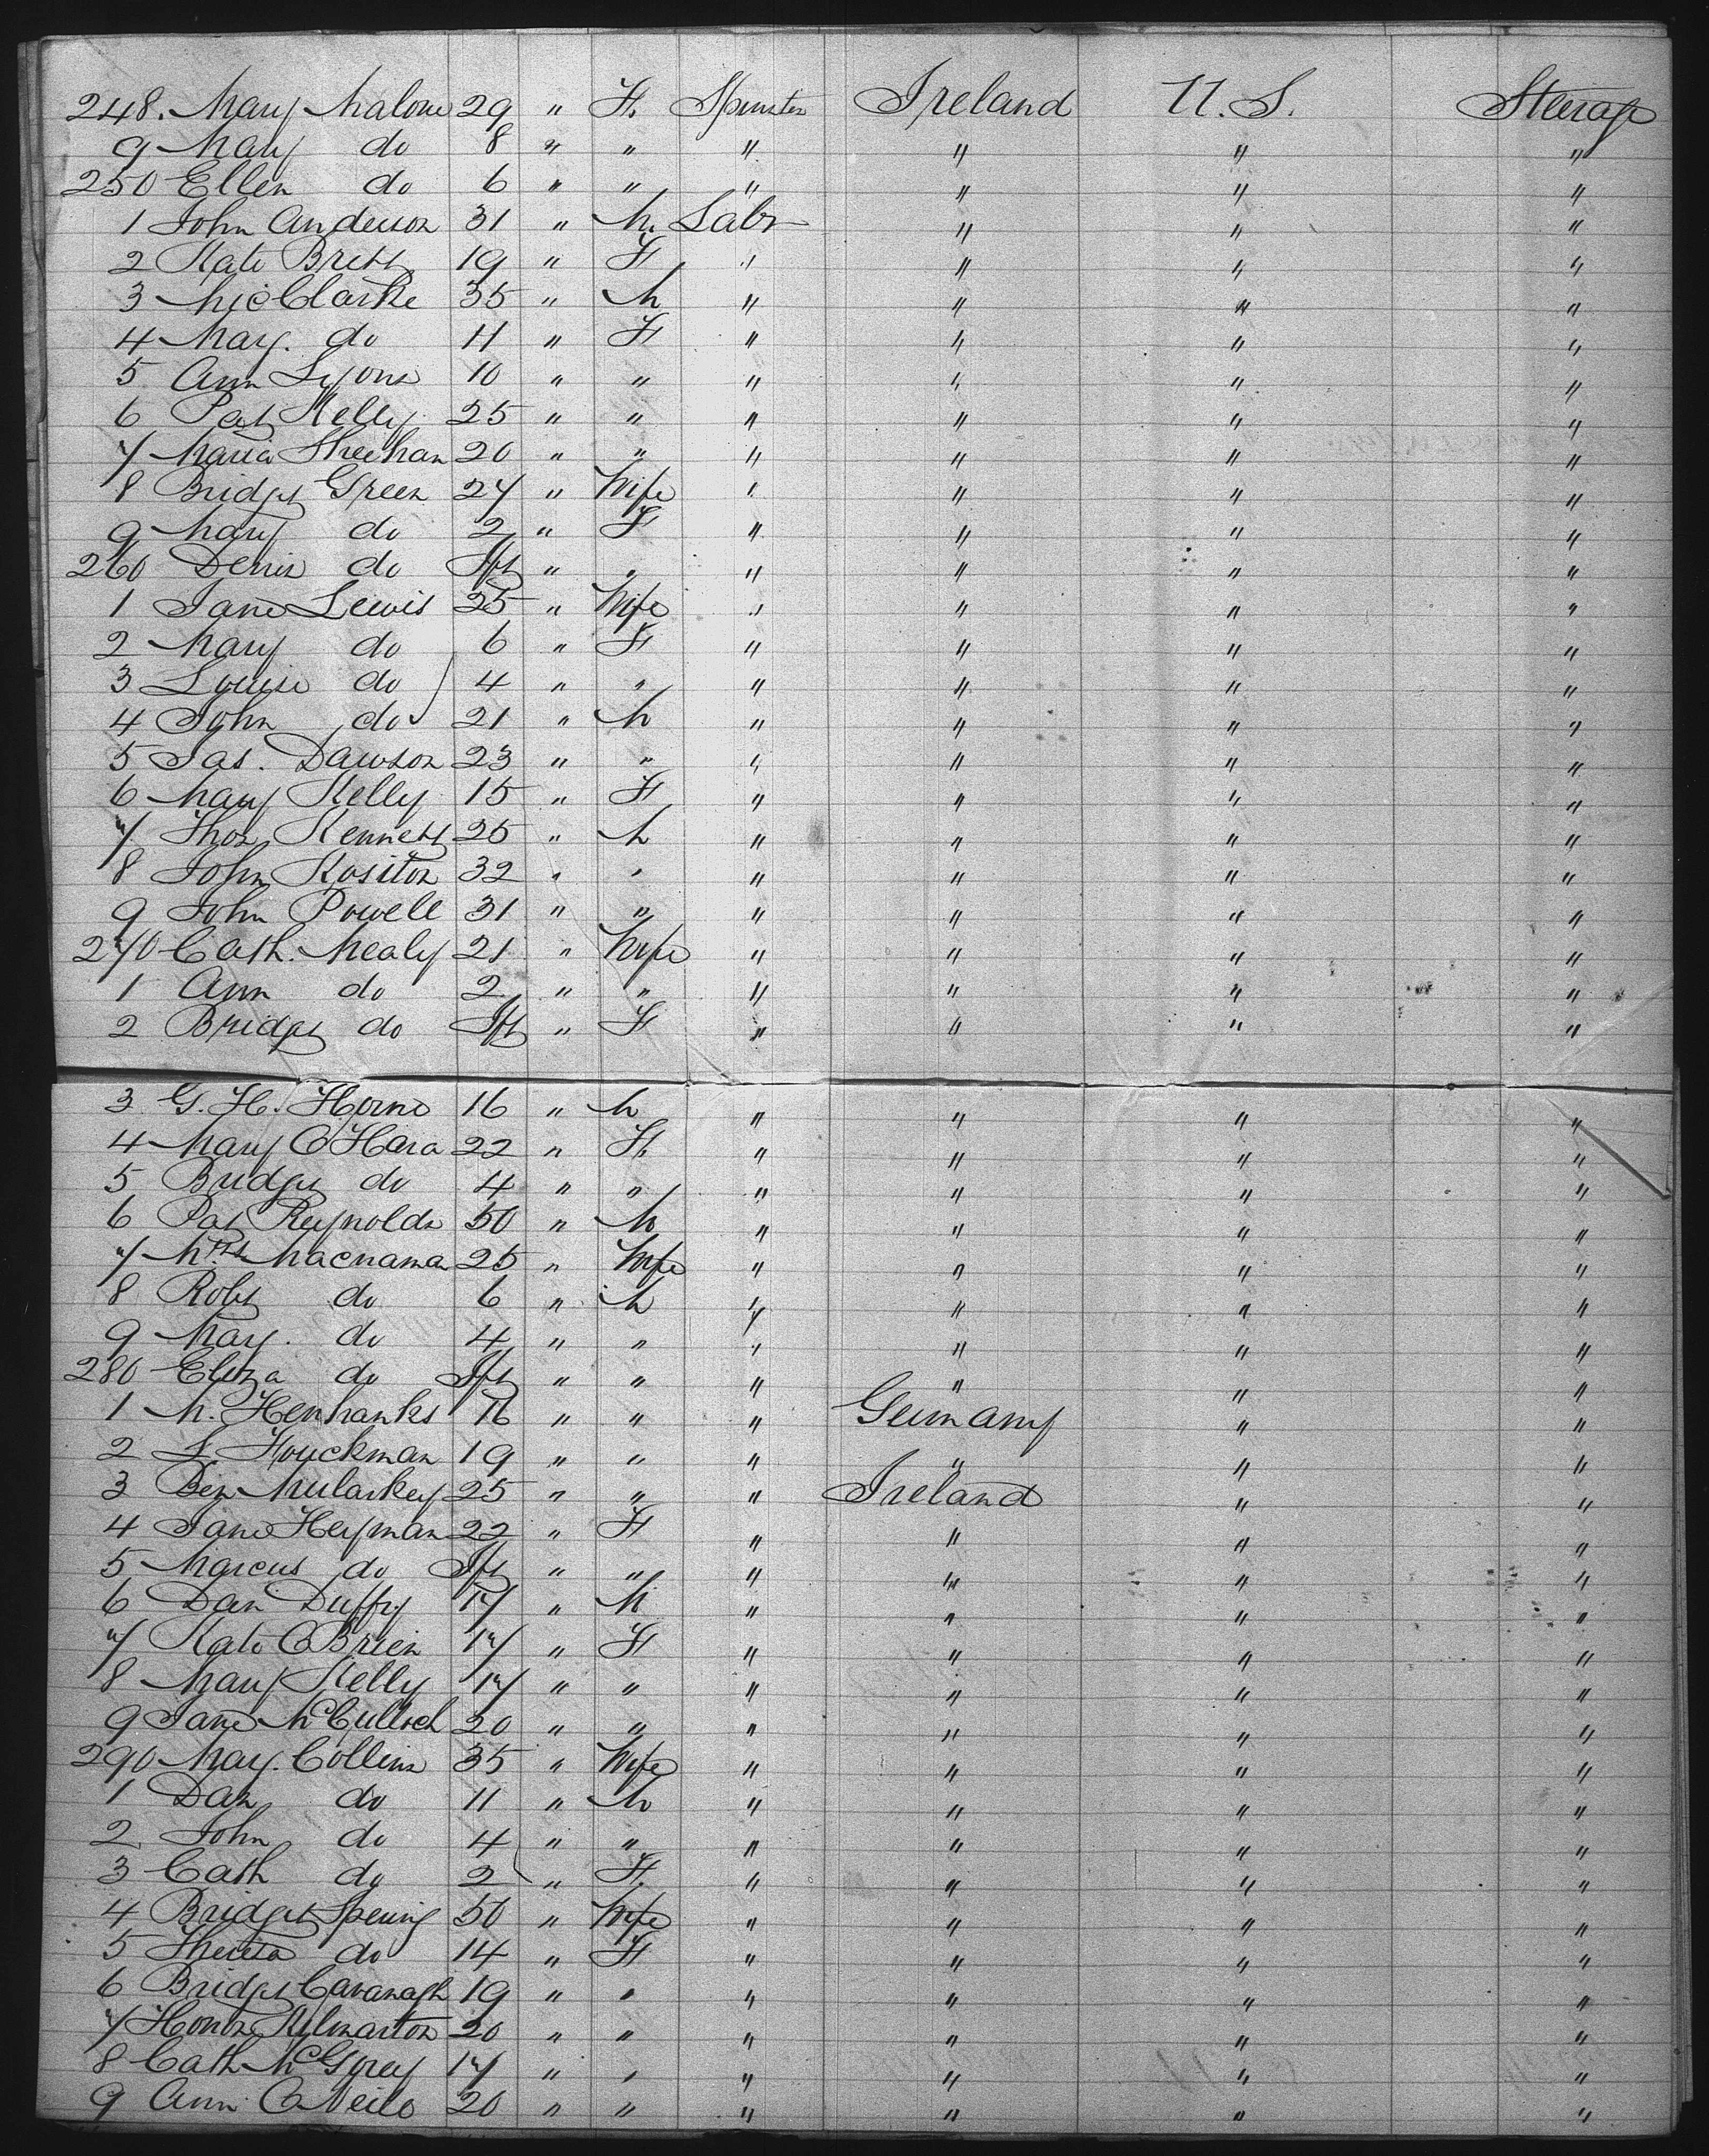 248. Mary Malone 29 " F. Spinster Ireland U.S. Steerage
9 Mary do 8 " " " " " "
250 Ellen do 6 " " " " " "
1 John Anderson 31 " M. Labr " " "
2 Kate Brett 19 " F " " " "
3 Mic Clarke 35 " M " " " "
4 Marg. do 11 " F " " " "
5 Ann Lyons 10 " " " " " "
6 Pat Kelly 25 " " " " " "
7 Maria Sheehan 20 " " " " " "
8 Bridget Green 27 " Wife " " " "
9 Mary do 2 " F " " " "
260 Denis do Inft " " " " " "
1 Jane Lewis 25 " Wife " " " "
2 Mary do 6 " F " " " "
3 Louise do 4 " " " " " "
4 John do 21 " M " " " "
5 Jas. Dawson 23 " " " " " "
6 Mary Kelly 15 " F " " " "
7 Thos Kennett 25 " M " " " "
8 John 32 " " " " " "
9 John Powell 31 " " " " " "
270 Cath. Mealy 21 " Wife " " " "
1 Ann do 2 " " " " " "
2 Bridget do Inft " F " " " "
3 G. H. Horne 16 " M " " " "
4 Mary O'Hara 22 " F. " " " "
5 Bridget do 4 " " " " " "
6 Pat Reynolds 50 " M " " " "
7 Mrs Macnama 25 " Wife " " " "
8 Robt do 6 " M " " " "
9 Marg. do 4 " " " " " "
280 Eliza do Inft " " " " " "
1 M. Henhanks 16 " " " Germany " "
2 L. Houckman 19 " " " " " "
3 Ben Mularkey 25 " " " Ireland " "
4 Jane Heyman 22 " F " " " "
5 Marcus do Inft " " " " " "
6 Dan Duffy 17 " M " " " "
7 Kate O'Brien 17 " F " " " "
8 Mary Kelly 17 " " " " " "
9 Jane McCulloch 20 " " " " " "
290 Marg. Collins 35 " Wife " " " "
1 Dan do 11 " M " " " "
2 John do 4 " " " " " "
3 Cath do 2 " F. " " " "
4 Bridget 50 " Wife " " " "
5 Theresa do 14 " F " " " "
6 Bridget Cavanagh 19 " " " " " "
7 Honor Kilmartin 20 " " " " " "
8 Cath 17 " " " " " "
9 Ann O'Neile 20 " " " " " "